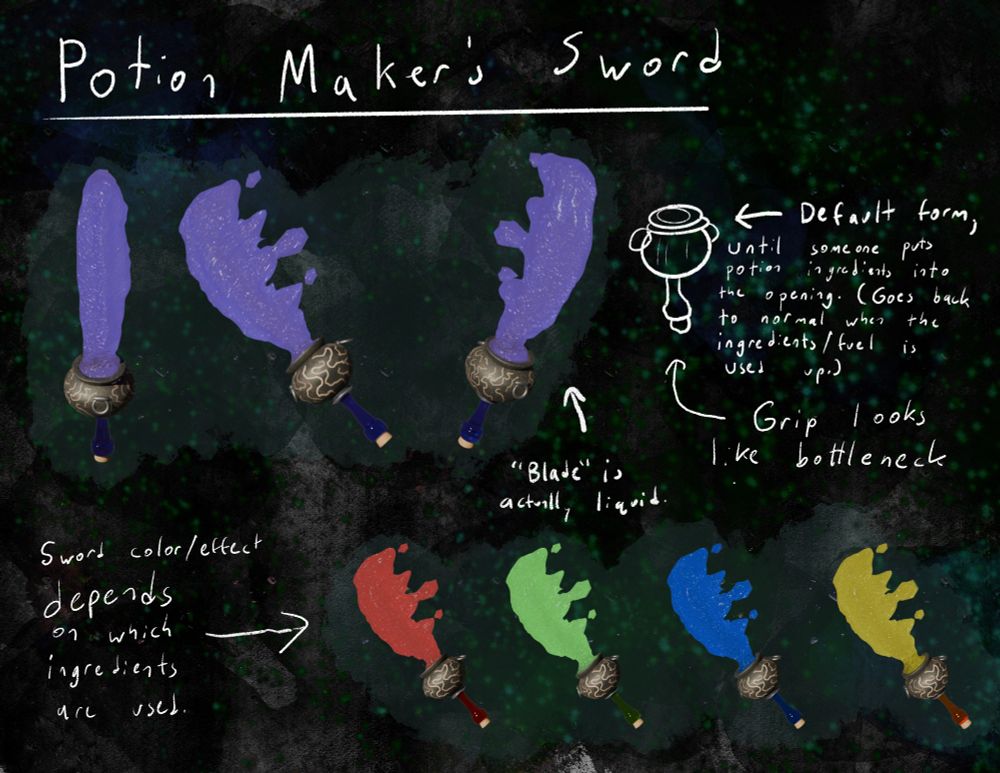 Potion Maker's Sword
Default form,
until someone puts
potion ingredients into
the opening. (Goes back
to normal when the
ingredients/fuel is
used up.)
Grip looks
like bottleneck
"Blade" is
actually liquid.
Sword color/effect
depends
on which
ingredients
are used.